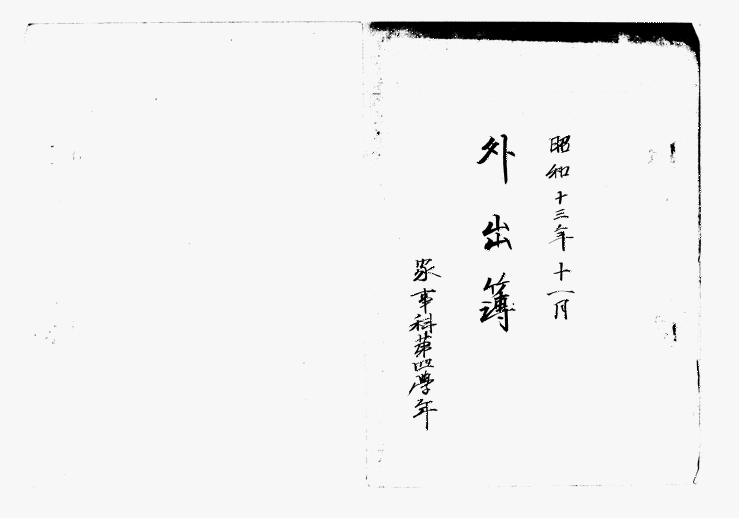 昭和十三年十一月
外出簿
家事科第四學年